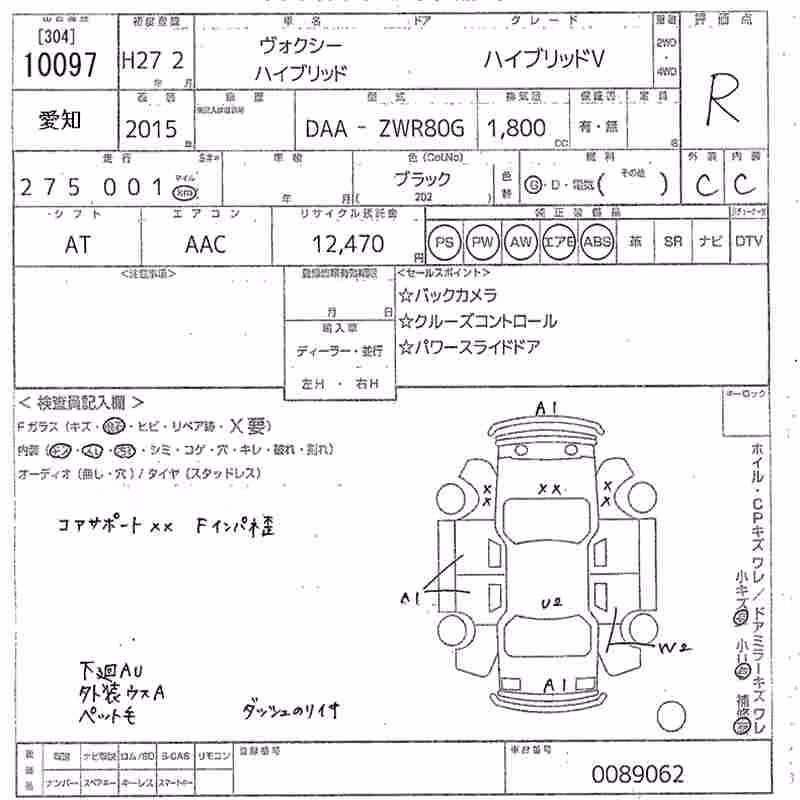 [304]
初度登録
車名
ドア
グレード
評価点
10097
H27 2
年 月
ヴォクシー
ハイブリッド
ハイブリッドV
2WD
・
4WD
R
愛知
2015
年
型式
DAA - ZWR80G
排気量
1,800
CC
有・無
名
走行
275001
マイル
Km
車検
年 月
色(Col.No)
ブラック
( 202 )
色替
燃料
G・D・電気( その他 )
外装
C
内装
C
シフト
AT
エアコン
AAC
リサイクル預託金
12,470
円
純正装備品
PS
PW
AW
エアB
ABS
革
SR
ナビ
DTV
<注意事項>
月 日
輸入車
ディーラー・並行
左H ・ 右H
<セールスポイント>
☆バックカメラ
☆クルーズコントロール
☆パワースライドドア
キーロック
<検査員記入欄>
Fガラス(キズ・飛石・ヒビ・リペア跡・X要)
内装(キズ・スレ・汚れ・シミ・コゲ・穴・キレ・破れ・割れ)
オーディオ(無し・穴)/タイヤ(スタッドレス)
コアサポート xx Fインパネ歪
A1
x x
x x
x x
A1
U2
W2
A1
ホイル・CPキズワレ/ドアミラーキズワレ
小キズ 小U 補修
下廻AU
外装ウスA
ペット毛
登録番号
車台番号
0089062
リモコン
ナンバー
スペアキー
キーレス
スマートキー